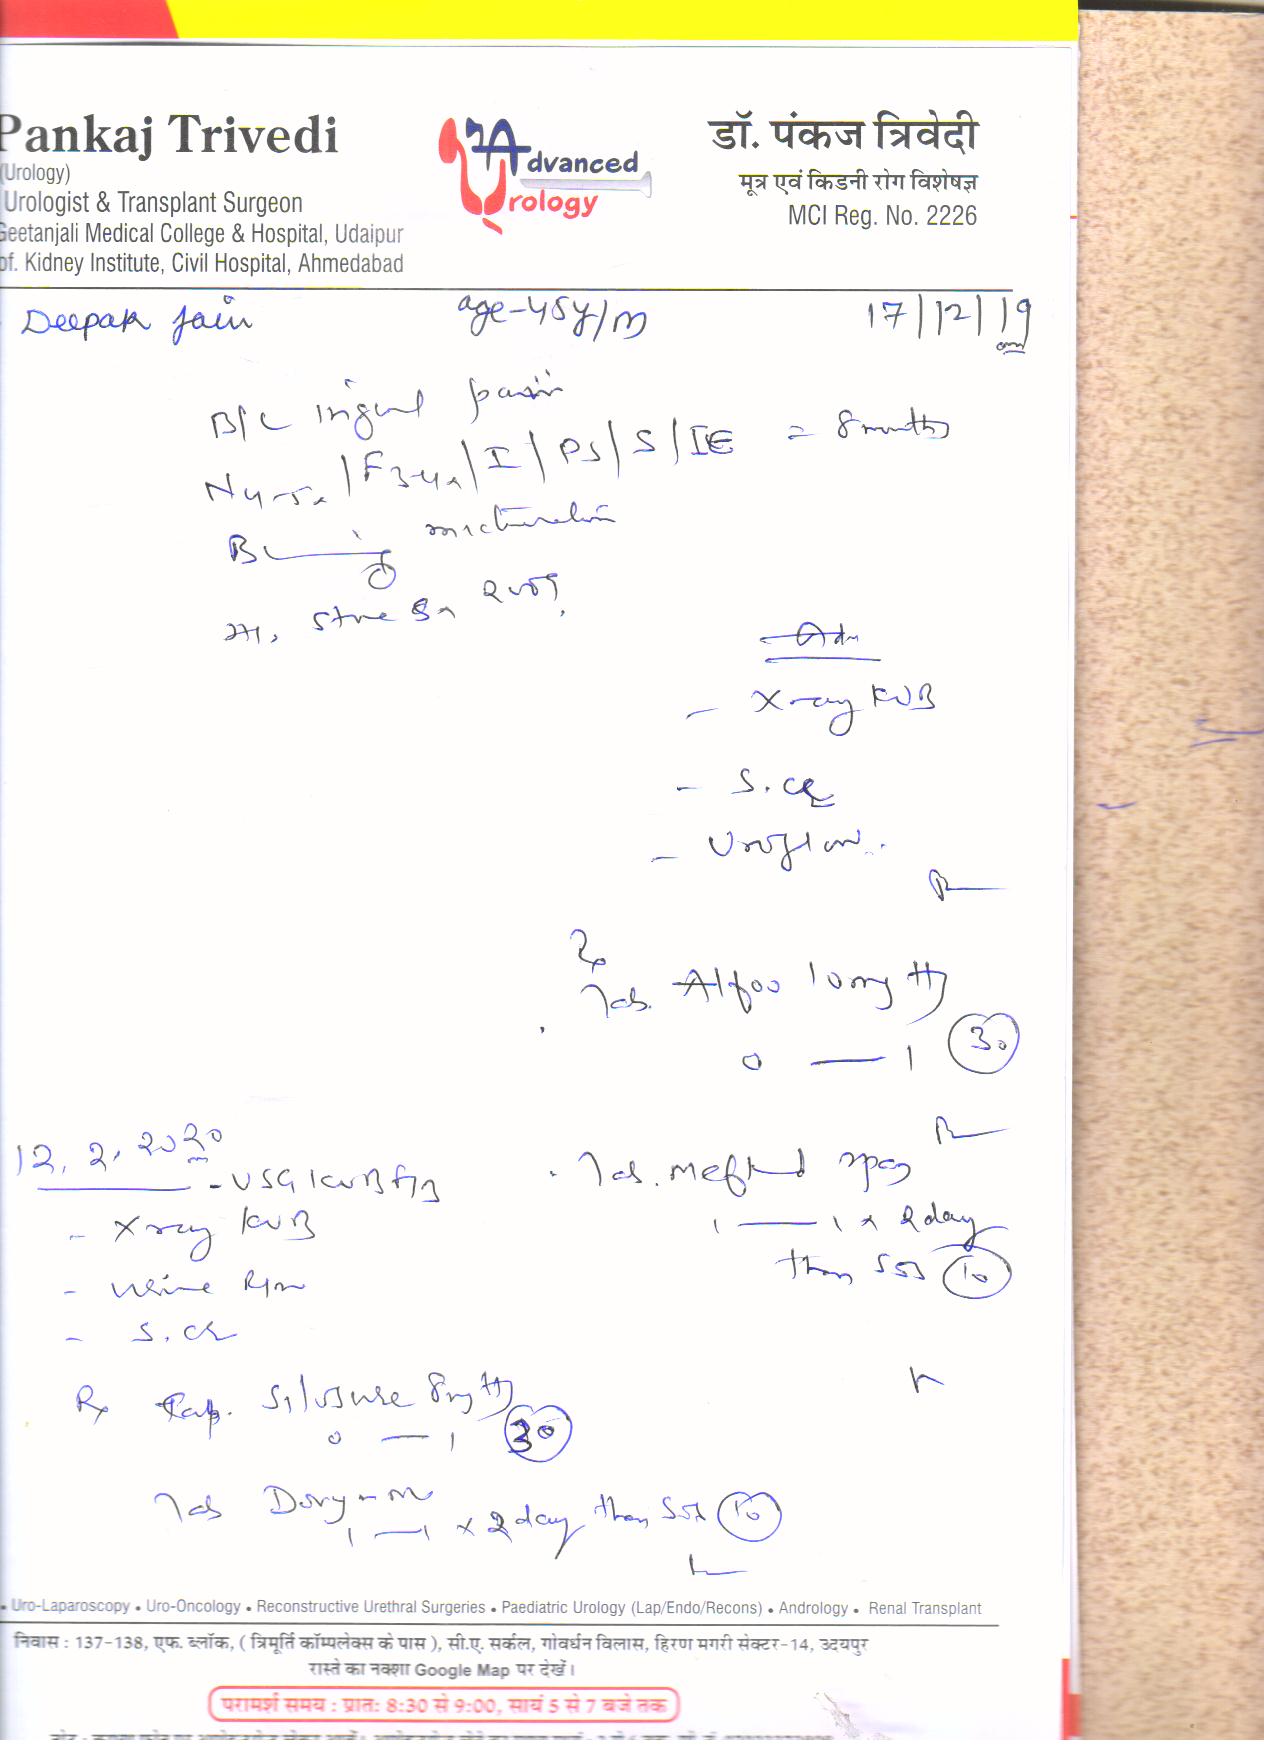 Pankaj Trivedi
(Urology)
Urologist & Transplant Surgeon
Geetanjali Medical College & Hospital, Udaipur
of. Kidney Institute, Civil Hospital, Ahmedabad
Advanced
Urology
डॉ. पंकज त्रिवेदी
मूत्र एवं किडनी रोग विशेषज्ञ
MCI Reg. No. 2226
Deepak Jain age-45y/m 17/12/19
B/L pain
/I/PS/S/IE = 8 months
B micturation
Adv
- Xray KUB
- S. cr
- Uroflow.
Rx
Tab. Alfoo 10mg
0 — 1 30
12.2.2020
- USG KUB
- Xray KUB
- Urine R/m
- S. cr
. Tab. meftal spas
1 — 1 x 2 day
than SOS 10
Rx Cap. Silosure 8mg
0 — 1 30
Tab
1 — 1 x 2 day than SOS 10
• Uro-Laparoscopy • Uro-Oncology • Reconstructive Urethral Surgeries • Paediatric Urology (Lap/Endo/Recons) • Andrology • Renal Transplant
निवास : 137-138, एफ. ब्लॉक, ( त्रिमूर्ति कॉम्पलेक्स के पास ), सी.ए. सर्कल, गोवर्धन विलास, हिरण मगरी सेक्टर-14, उदयपुर
रास्ते का नक्शा Google Map पर देखें।
परामर्श समय : प्रातः 8:30 से 9:00, सायं 5 से 7 बजे तक